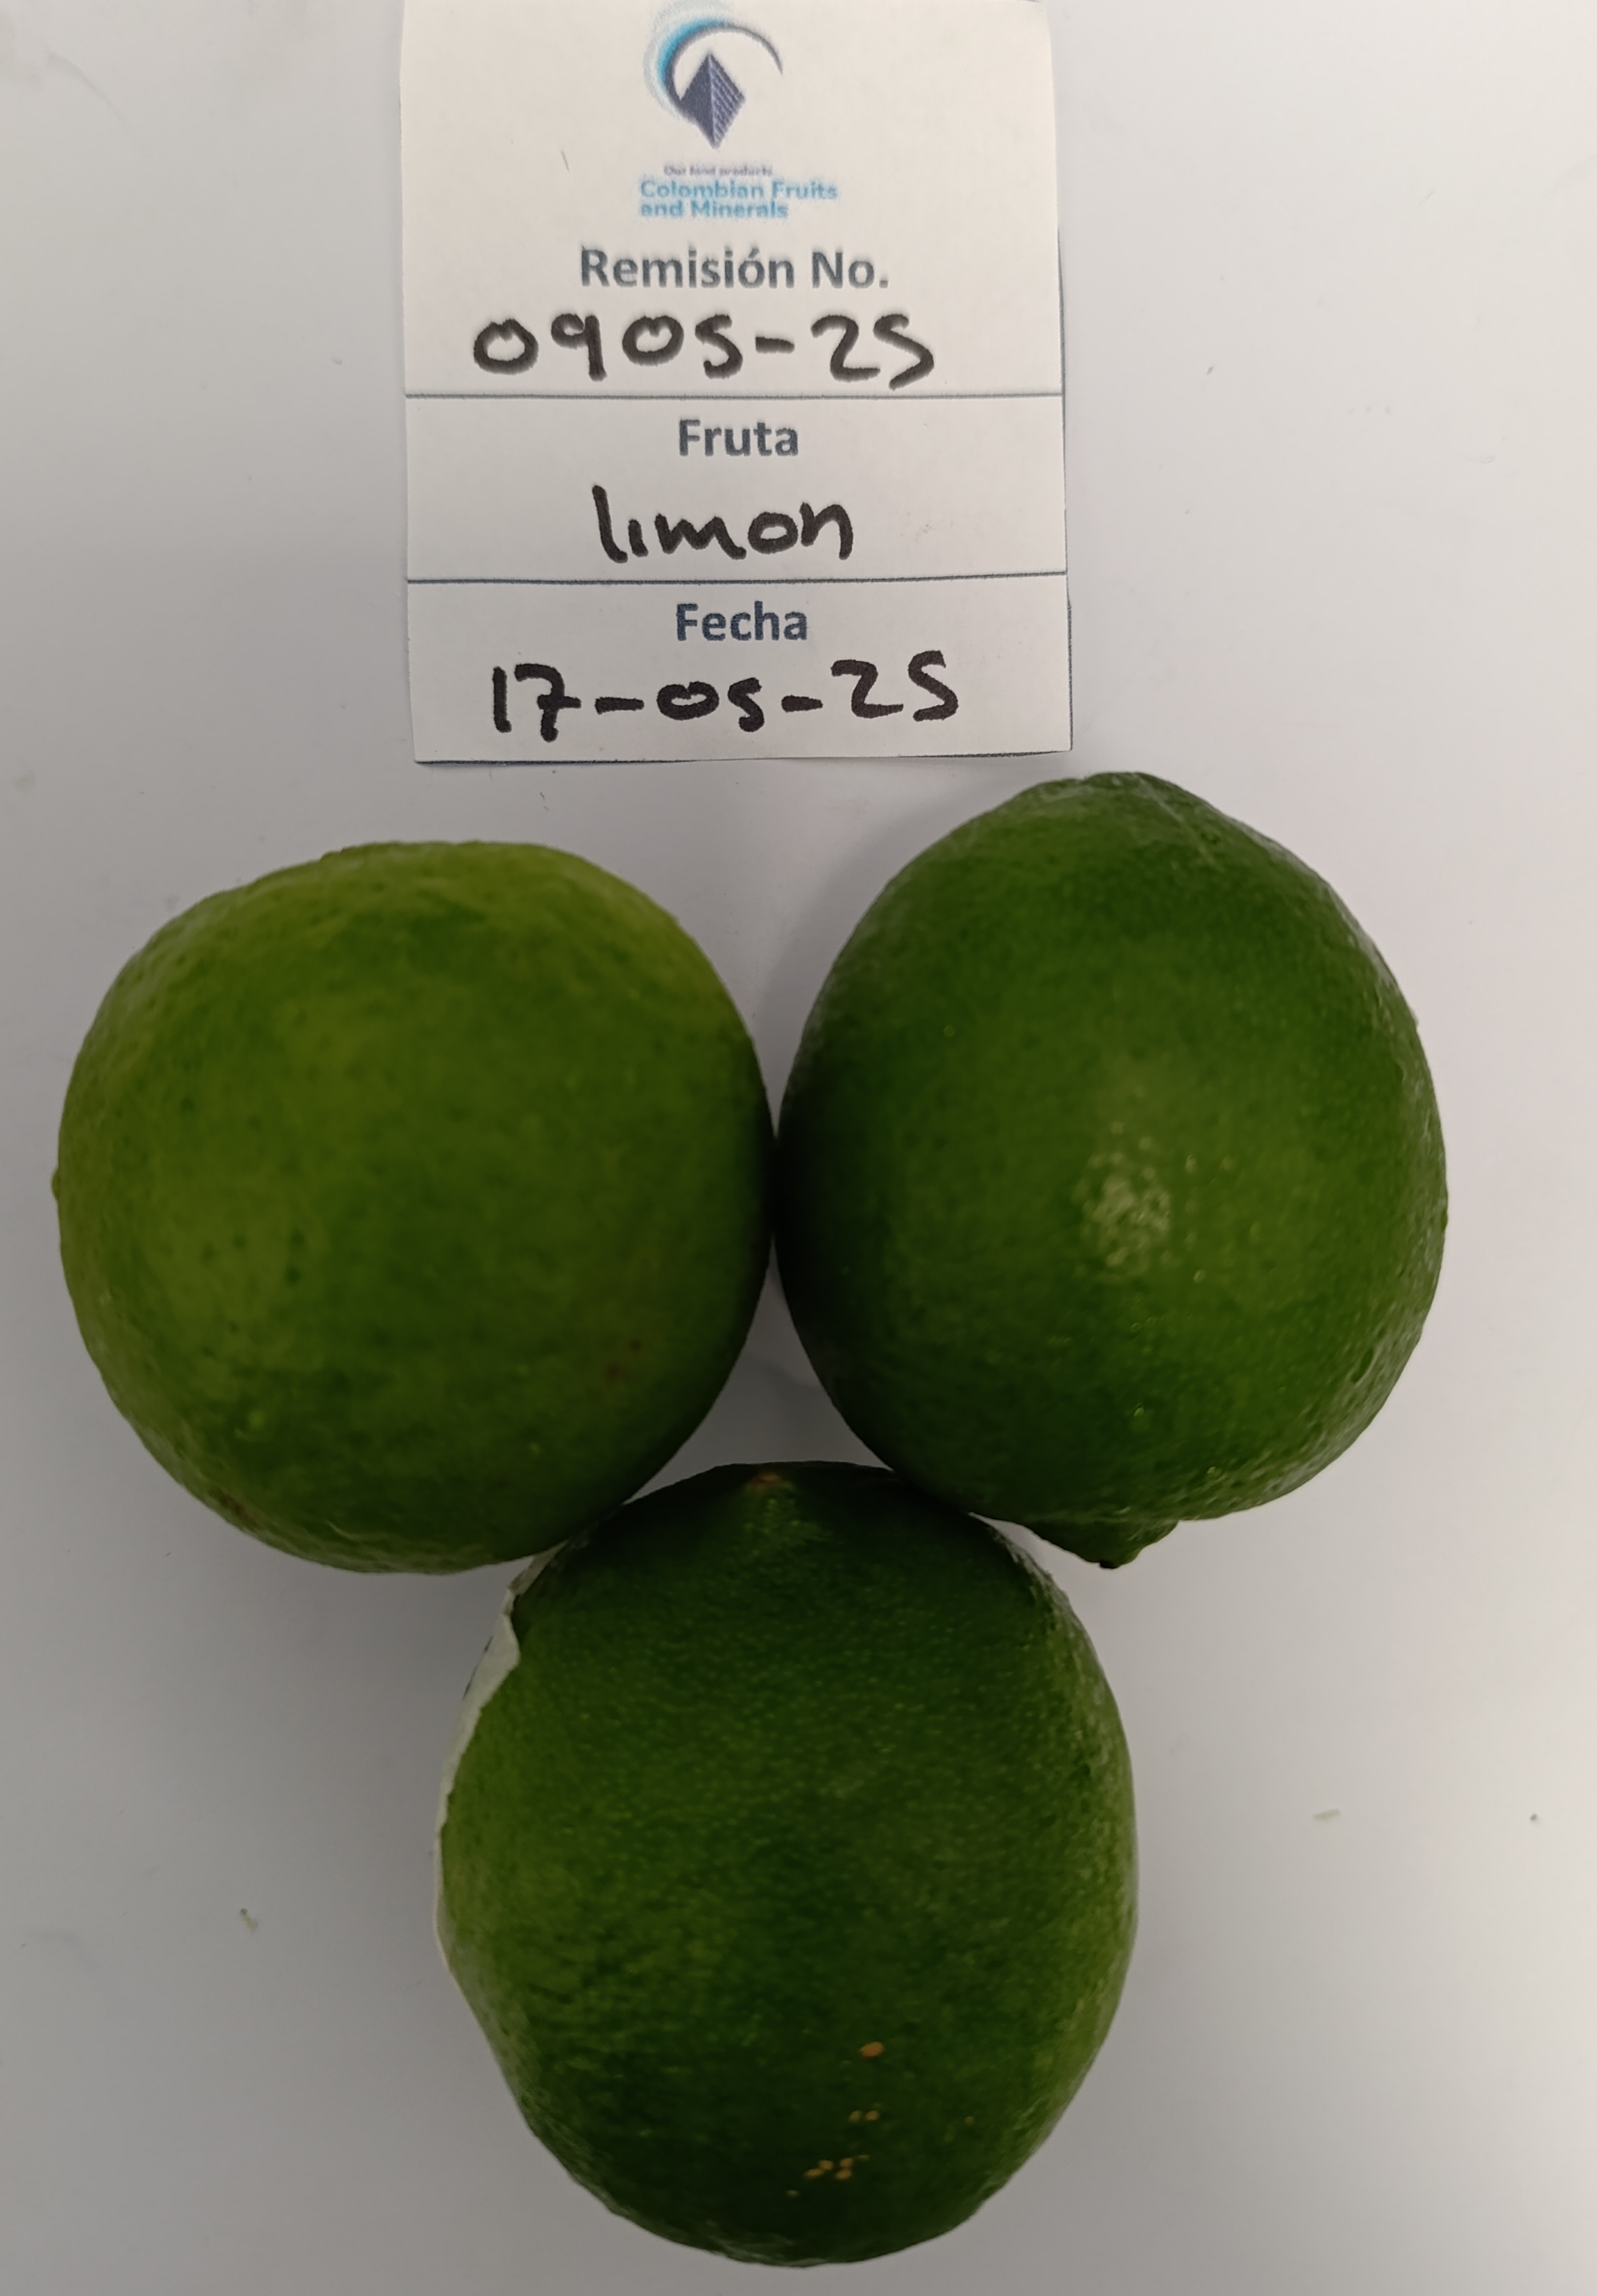 Our food products
Colombian Fruits
and Minerals
Remisión No.
0905-25
Fruta
limon
Fecha
17-05-25